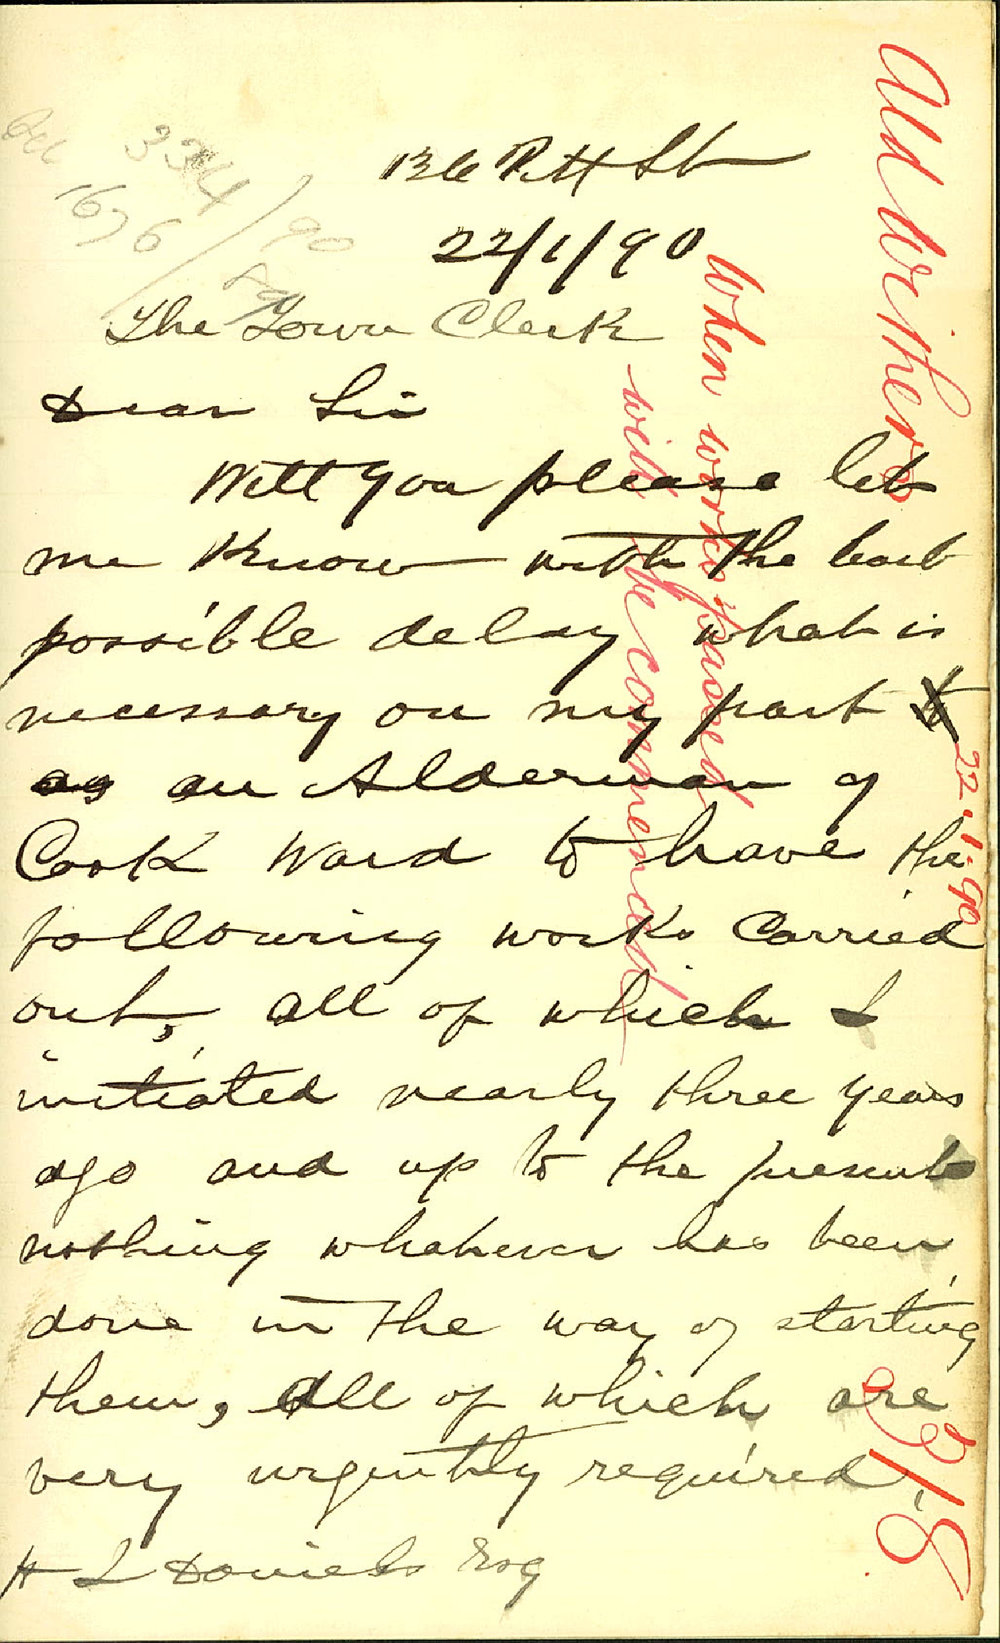 136 Pitt St
22/1/90
The Town Clerk
Dear Sir
Will you please let
me know with the least
possible delay what is
necessary on my part
as an Alderman of
Cook Ward to have the
following works carried
out, all of which I
initiated nearly three years
ago and up to the present
nothing whatever has been
done in the way of starting
them, all of which are
very urgently required
H J Daniels Esq
334/90
1676/89
Ald Withers
When works passed
will be commenced
22.1.90